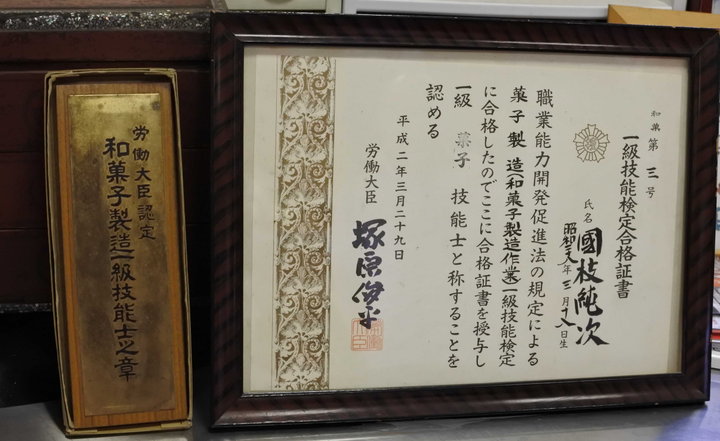 労働大臣認定
和菓子製造一級技能士之章
和菓第三号
一級技能検定合格証書
氏名 國枝純次
昭和二八年三月十八日生
職業能力開発促進法の規定による
菓子製造(和菓子製造作業)一級技能検定
に合格したのでここに合格証書を授与し
一級 菓子 技能士と称することを
認める
平成二年三月二十九日
労働大臣 塚原俊平